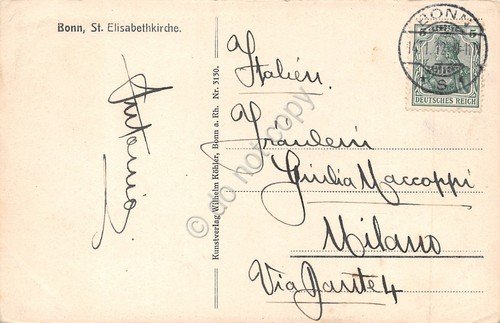 Bonn, St. Elisabethkirche.
Antonio.
Kunstverlag Wilhelm Köhler, Bonn a. Rh. Nr. 3130.
do not copy
BONN
5 5
DEUTSCHES REICH
Italien.
Fräulein
Giulia Maccoppi
Milano
Via Dante 4